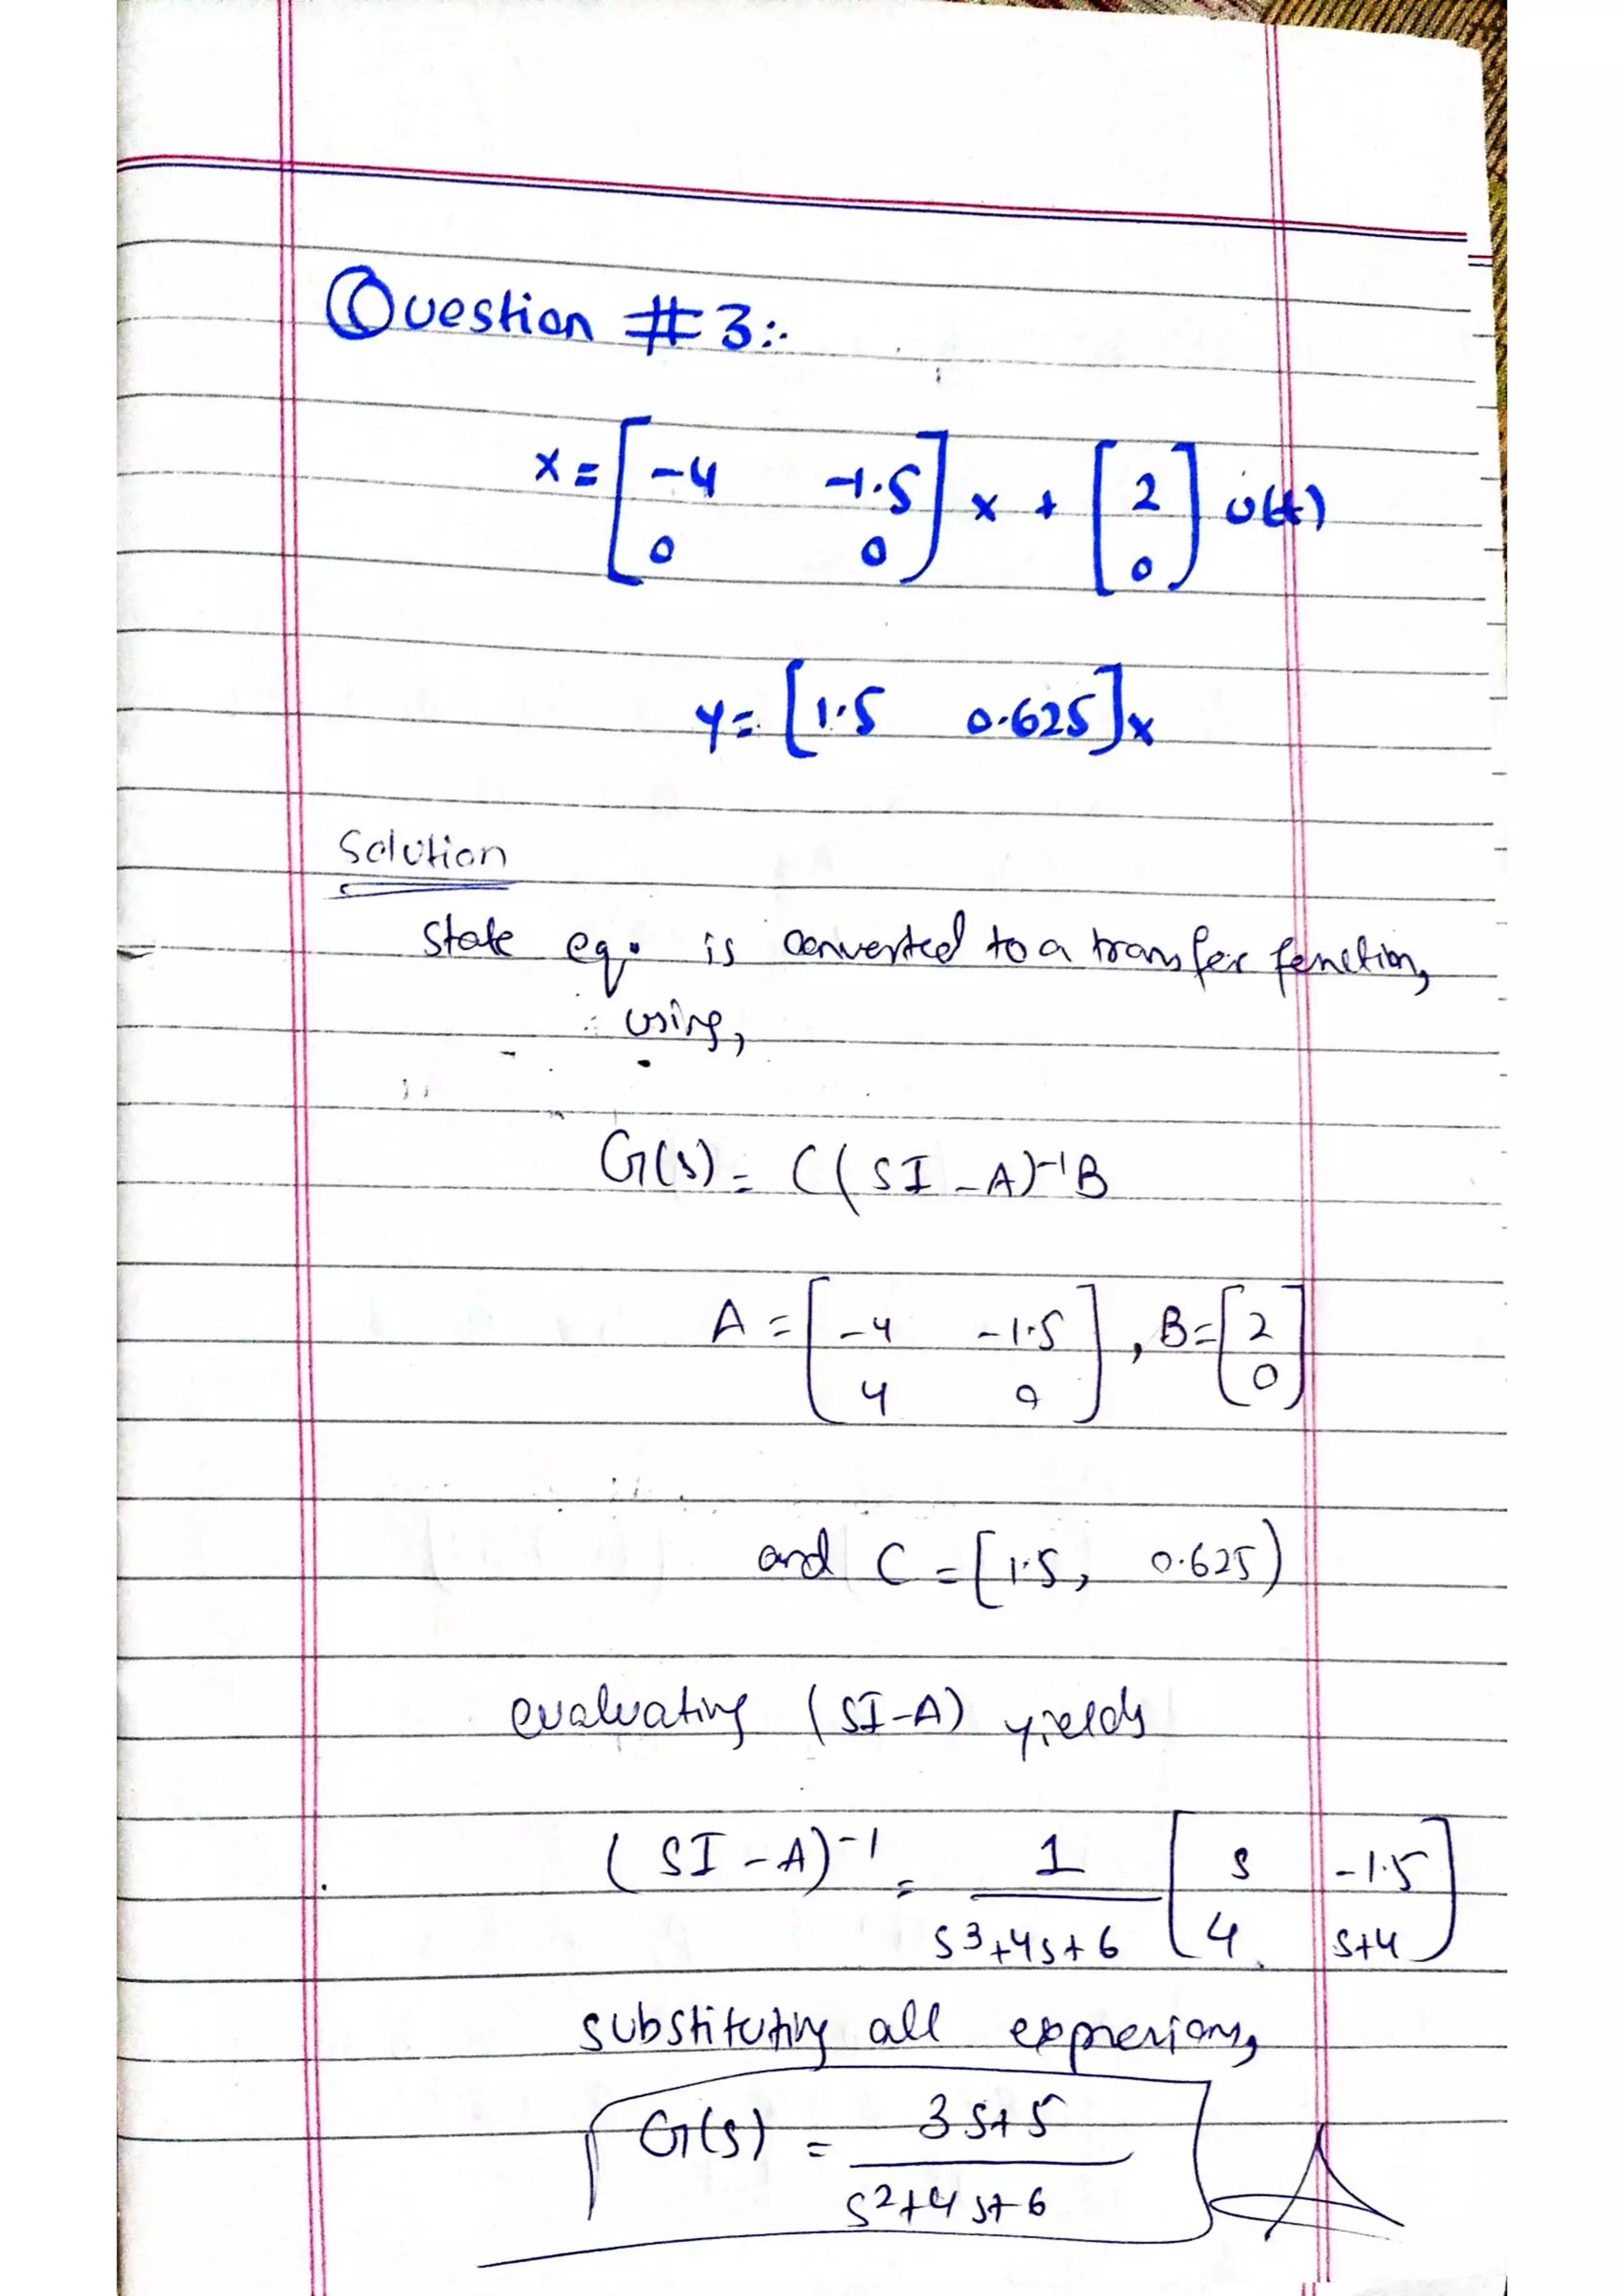 Question #3:-
x = [ -4 -1.5 ; 0 0 ] x + [ 2 ; 0 ] u(t)
y = [ 1.5 0.625 ] x
Solution
State eq. is converted to a transfer function,
using,
G(s) = C(SI - A)^-1 B
A = [ -4 -1.5 ; 4 0 ] , B = [ 2 ; 0 ]
and C = [ 1.5, 0.625 )
evaluating (SI-A) yields
(SI - A)^-1 = 1 / s^3+4s+6 [ s -1.5 ; 4 s+4 ]
substituting all expressions,
G(s) = 3s+5 / s^2+4s+6